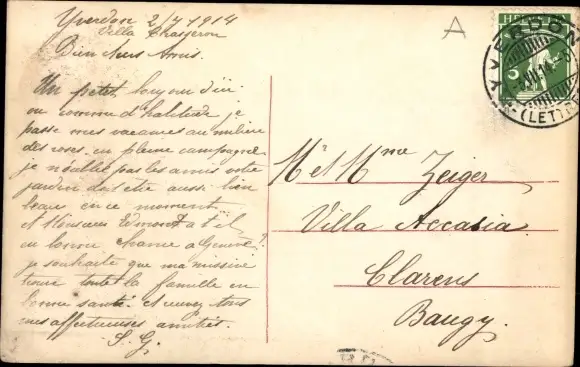 Yverdon 2/7 1914
Villa Chasseron
Bien chers Amis.
Un petit bonjour d'ici
ou comme d'habitude je
passe mes vacances au milieu
des roses. en pleine campagne
je n'oublie pas les amis votre
jardin doit être aussi bien
beau en ce moment
et Monsieur Edmond a t'il
eu bonne chance a Genève?
je souhaite que ma missive
trouve toute la famille en
bonne santé. et recevez tous
mes affectueuses amitiés.
S. G.
A
HELVETIA
YVERDON
(LETTR.)
Mr et Mme Zeiger
Villa Accacia
Clarens
Baugy.